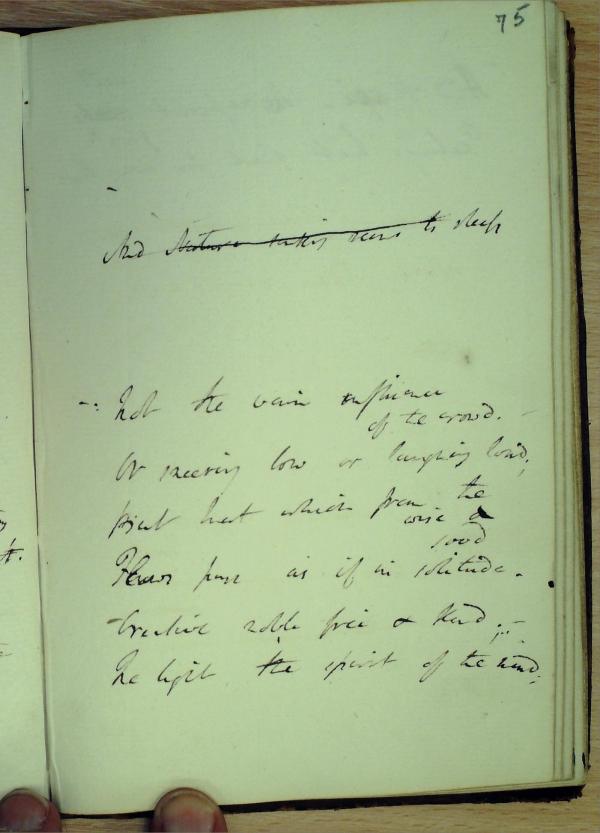 75
And Nature taking seems to sleep
Not the vain influence
of the crowd. –
Or sneering low or laughing loud;
but which from the
wise &
good
Flows pure as if in solitude.
Creative noble free & kind;
The light the spirit of the mind;